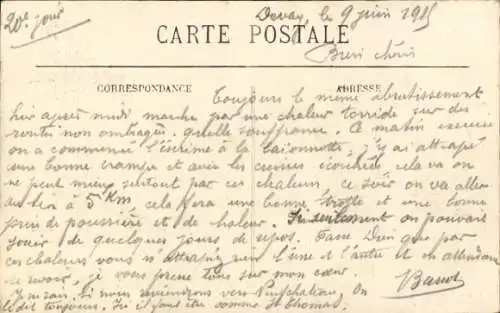 20e jour
Devay, le 9 juin 1915
CARTE POSTALE
Bien chéris
CORRESPONDANCE
ADRESSE
Toujours le même abrutissement
hier après midi marche par une chaleur torride sur des
routes non ombragées. quelle souffrance. Ce matin exercice
on a commencé l'escrime à la baïonnette, j'y ai attrapé
une bonne crampe et avec les cuisses écorchées cela va on
ne peut mieux surtout par ces chaleurs. ce soir on va aller
au à 5 Km cela fera une bonne trotte et une bonne
prise de poussière et de chaleur. Si seulement on pouvait
jouir de quelques jours de repos. Fasse Dieu que par
ces chaleurs vous n'attrapiez rien l'une et l'autre et en attendant
se revoir, je vous presse tous sur mon cœur.
Je ne sais si nous reviendrons vers Neufchateau. On
le dit toujours. Ici il faut être comme St Thomas.